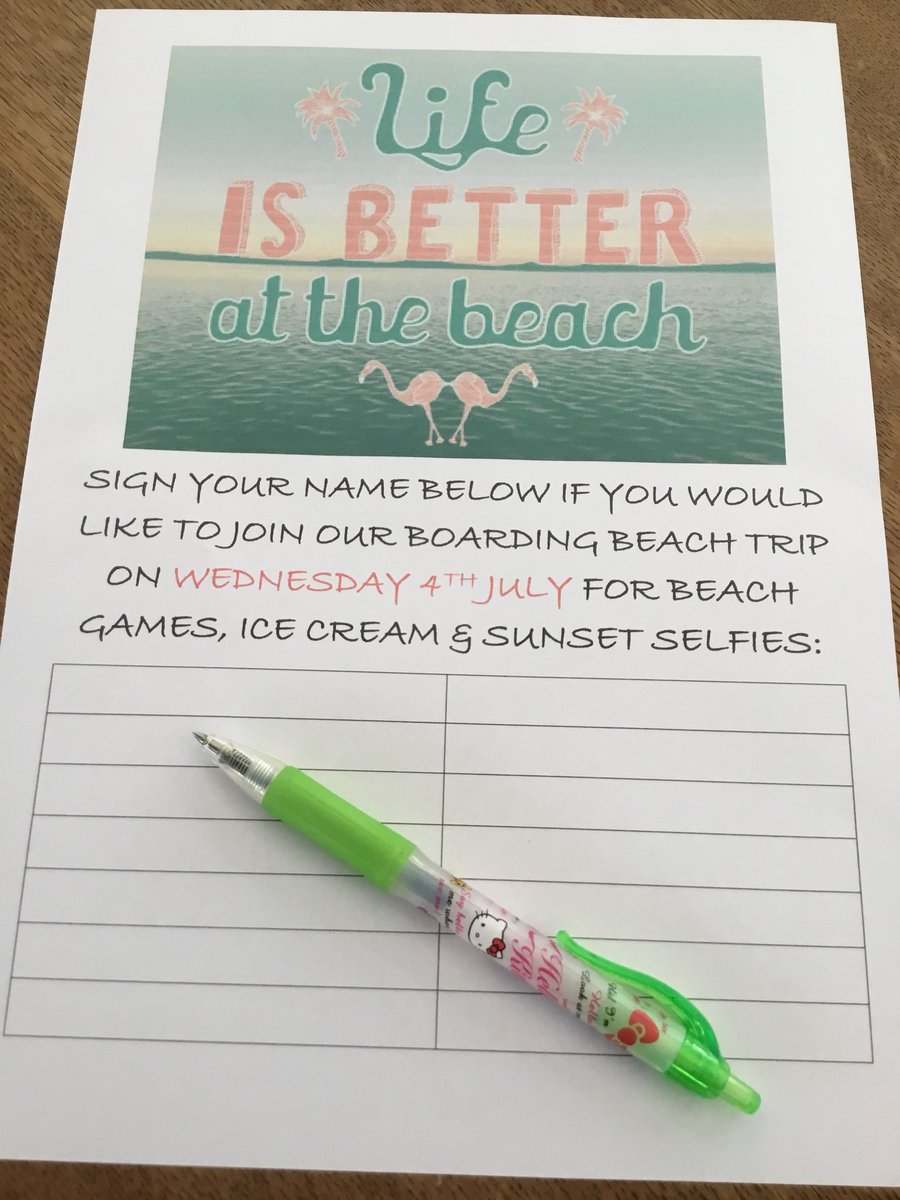 Life
IS BETTER
at the beach
SIGN YOUR NAME BELOW IF YOU WOULD
LIKE TO JOIN OUR BOARDING BEACH TRIP
ON WEDNESDAY 4TH JULY FOR BEACH
GAMES, ICE CREAM & SUNSET SELFIES:
Say hello